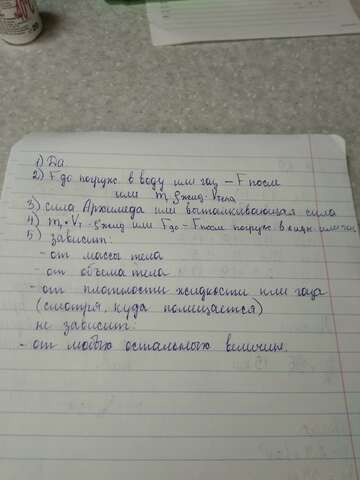 1) Да
2) F до погруж. в воду или газ – F после
или m ρжид. Vтела
3) сила Архимеда или выталкивающая сила
4) Vт · ρжид или Fдо – Fпосле погруж. в жидк. или газ
5) зависит:
- от массы тела
- от объема тела
- от плотности жидкости или газа
(смотря, куда помещается)
не зависит:
- от любых остальных величин.